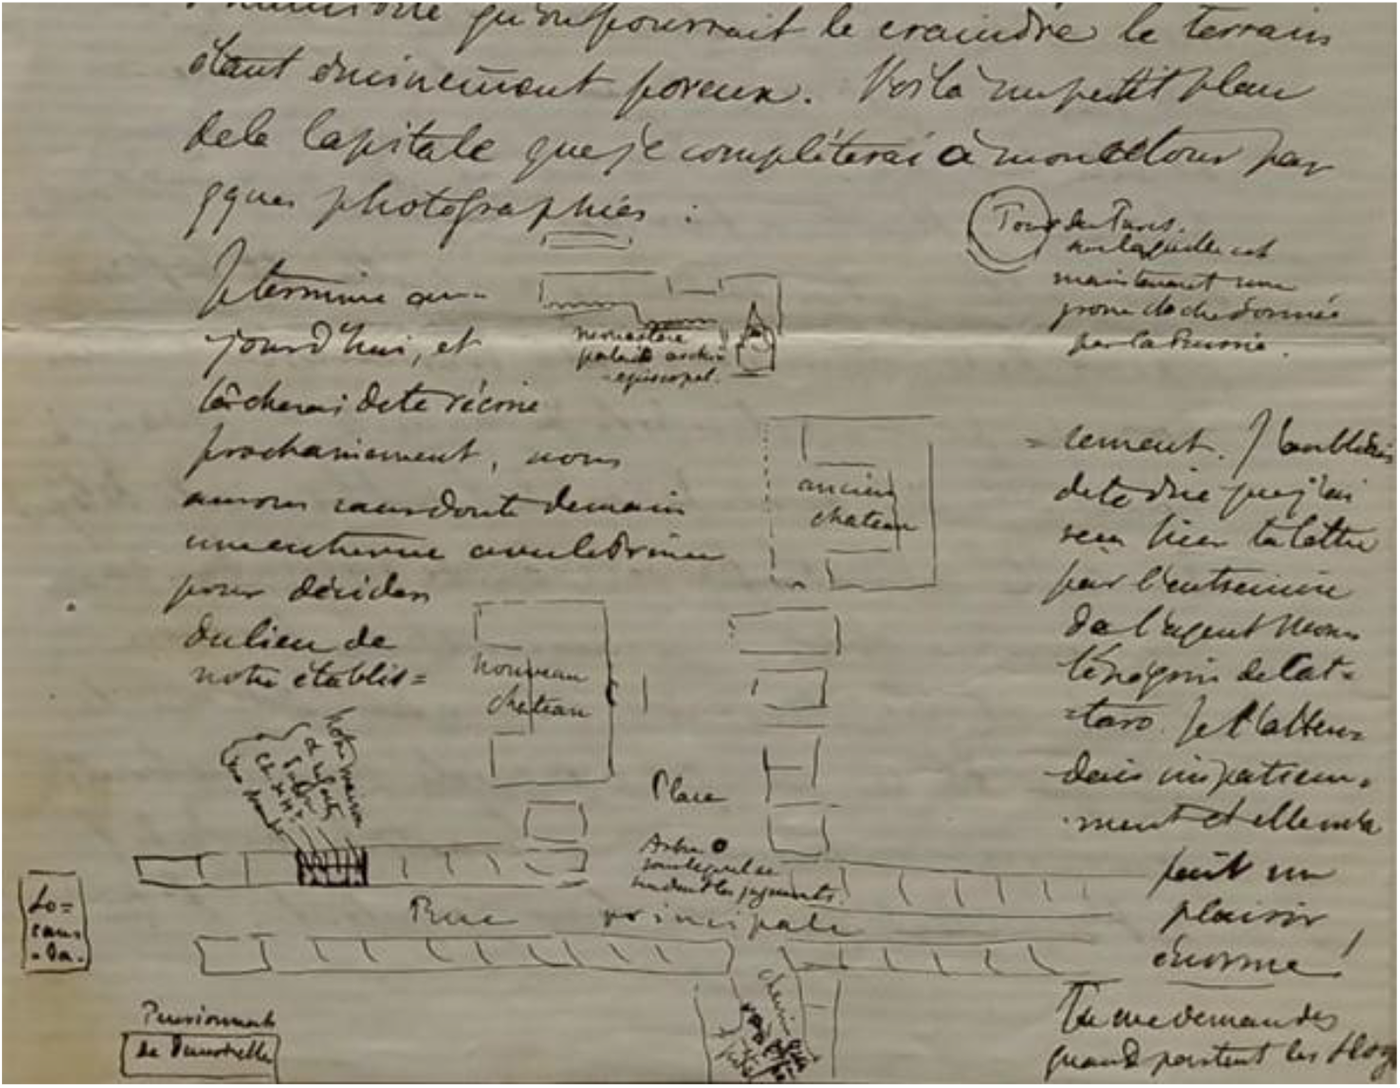 qu'on pourrait le craindre le terrain
étant éminemment poreux. Voilà un petit plan
de la Capitale que je compléterai à mon retour par
qques photographies :
Je termine au-
jourd'hui, et
tâcherai de te récrire
prochainement, nous
aurons sans doute demain
une entrevue avec le Prince
pour décider
du lieu de
notre établis=
monastère
palais archi
-épiscopal.
Tour des Turcs.
sur laquelle est
maintenant une
grosse cloche donnée
par la Russie.
ancien
chateau
nouveau
chateau
Place
Arbre
sous lequel se
rendent les jugements.
Rue principale
notre maison
Lo=
can=
-da.
Pensionnat
de Demoiselles
chemin
=sement. J'oubliais
de te dire que j'ai
reçu hier ta lettre
par l'entremise
de l'agent
de Cat=
=taro. Je l'atten=
dais impatiem=
-ment et elle m'a
fait un
plaisir
énorme!
Tu me demandes
quand partent les